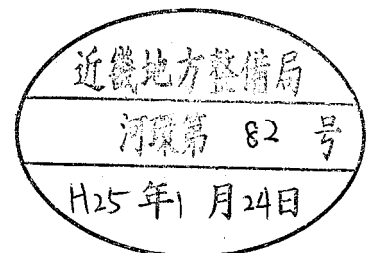 近畿地方整備局
河環第 82 号
H25年1月24日